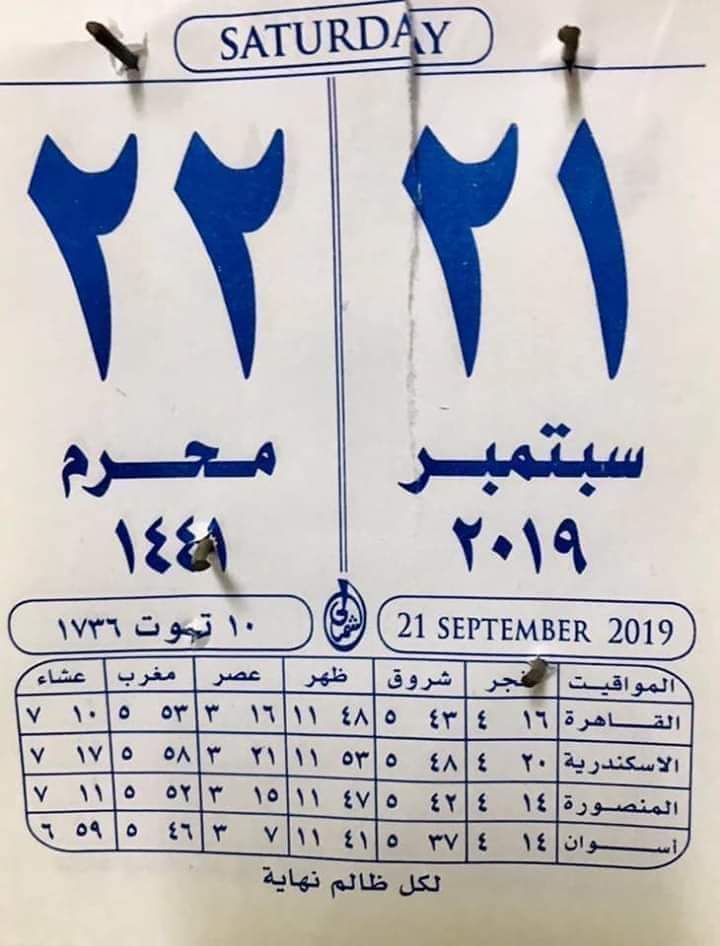 SATURDAY
٢١ ٢٢
سبتمبر محرم
٢٠١٩ ١٤٤١
21 SEPTEMBER 2019 ١٠ توت ١٧٣٦
المواقيت فجر شروق ظهر عصر مغرب عشاء
القاهرة ١٦ ٤ ٤٣ ٥ ٤٨ ١١ ١٦ ٣ ٥٣ ٥ ١٠ ٧
الاسكندرية ٢٠ ٤ ٤٨ ٥ ٥٣ ١١ ٢١ ٣ ٥٨ ٥ ١٧ ٧
المنصورة ١٤ ٤ ٤٢ ٥ ٤٧ ١١ ١٥ ٣ ٥٢ ٥ ١١ ٧
أسوان ١٤ ٤ ٣٧ ٥ ٤١ ١١ ٧ ٣ ٤٦ ٥ ٥٩ ٦
لكل ظالم نهاية